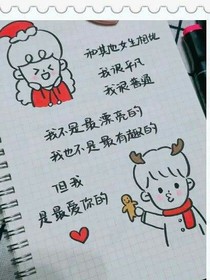 和其他女生相比
我很平凡
我很普通
我不是最漂亮的
我也不是最有趣的
但我
是最爱你的